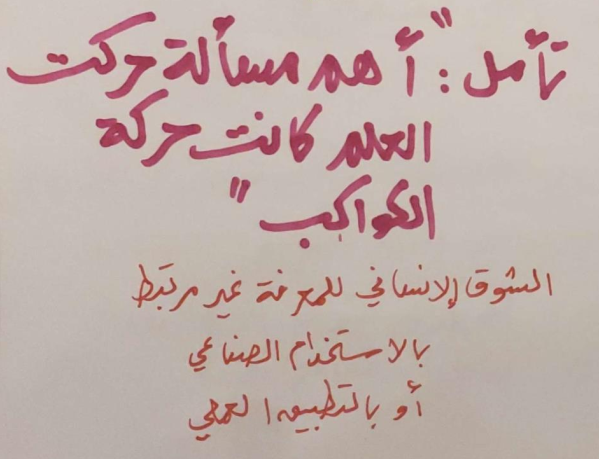 تأمل: "أهم مسألة حركت
العلم كانت حركة
الكواكب"
الشوق الإنساني للمعرفة غير مرتبط
بالاستخدام الصناعي
أو بالتطبيق العملي